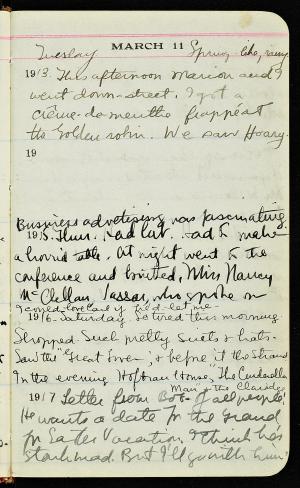 Tuesday MARCH 11 Spring-like, rainy
1913. This afternoon Marion and I
went down-street. I got a
crême-de-menthe frappé at
the Golden robin. We saw Hoary.
19
Business advertising was fascinating.
1915. Thur. Had Lat. Had to make
a horrid table. At night went to the
conference and knitted, Miss Nancy
McClellan, Vassar, who spoke on
1916. Saturday. Loved this morning.
Shopped. Such pretty suits & hats.
Saw the "Great Lover", & before it the Strand
In the evening Hofbrau House. "The Cinderella
Man" & the Claridge
1917 Letter from Bob - of all people!
He wants a date for the Grand,
for Easter Vacation. I think he's
stark mad. But I'll go with him!